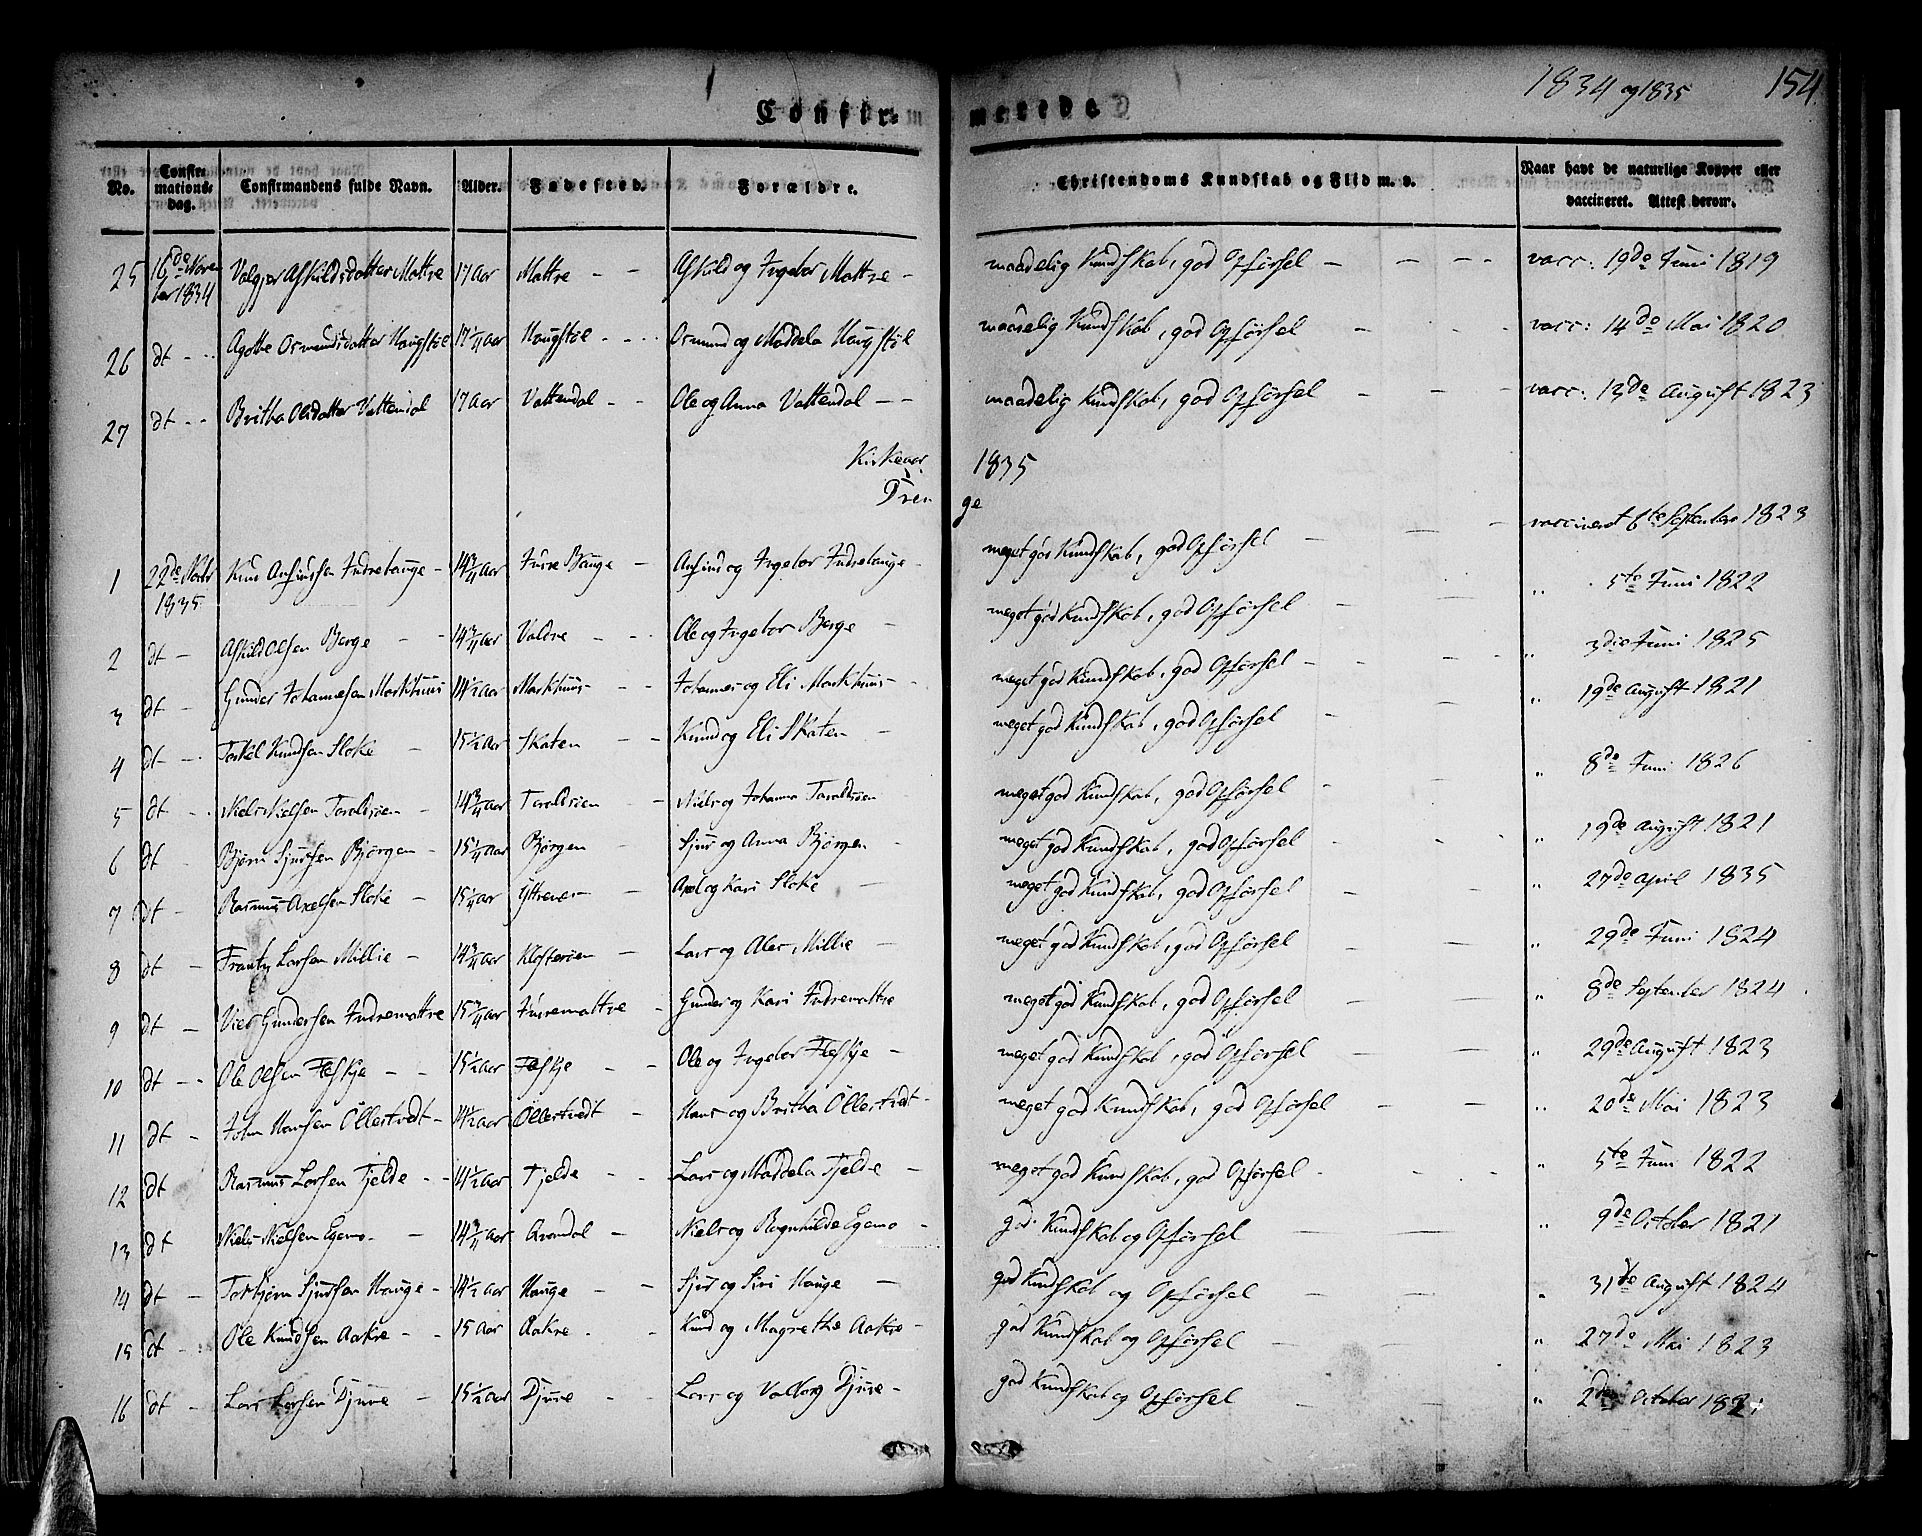 1834 og 1835 154
Confir- merede
No. Confirmationsdag. Confirmandens fulde Navn. Alder. Fødested. Forældre. Christendoms Kundskab og Flid m. v. Naar havt de naturlige Kopper eller vaccineret. Attest derom.
25 16de November 1834 Valgjer Askildsdatter Mattre 17 Aar Mattre - - Askild og Ingebor Mattre - maadelig Kundskab, god Opførsel - - - - vacc: 19de Juni 1819
26 dt - - Agothe Osmundsdatter Haugstøl 17 1/4 Aar Haugstøl - - - Osmund og Maddela Haugstøl maadelig Kundskab, god Opførsel - - - vacc: 14de Mai 1820
27 dt - - Britha Olsdatter Vattendal 17 Aar Vattendal - - Ole og Anna Vattendal - - maadelig Kundskab, god Opførsel - - - vacc: 13de August 1823
Kirkeaar 1835
1 22de Novbr 1835 Knud Anfindsen Indrebauge - 14 3/4 Aar Indre Bauge - Anfind og Ingebor Indrebauge - meget god Kundskab, god Opførsel - - - vaccineret 6te September 1823
2 dt - Askild Olsen Berge - - 14 3/4 Aar Valdre - - - Ole og Ingebor Berge - meget god Kundskab, god Opførsel - - - " 5te Juni 1822
3 dt - Gunder Johannesen Markhuus 14 1/2 Aar Markhuus - - Johannes og Eli Markhuus - meget god Kundskab, god Opførsel - - - - " 3die Juni 1825
4 dt - - Torkel Knudsen Sloke - 15 1/2 Aar Skaten - - Knud og Eli Skaten - meget god Kundskab, god Opførsel - - - " 19de August 1821
5 dt - - Niels Nielsen Taraldsøen - 14 3/4 Aar Taraldsøen - Niels og Johanna Taraldsøen meget god Kundskab, god Opførsel - - " 8de Juni 1826
6 dt - Bjørn Sjursen Bjørgen - 15 1/4 Aar Bjørgen - Sjur og Anna Bjørgen - meget god Kundskab, god Opførsel - - " 19de August 1821
7 dt - Rasmus Axelsen Sloke - 15 1/4 Aar - Axel og Kari Sloke - meget god Kundskab, god Opførsel - - " 27de April 1835
8 dt - Frantz Larsen Millie - 14 3/4 Aar Klosterøen - Lars og Ales Millie - meget god Kundskab, god Opførsel - - " 29de Juni 1824
9 dt - Gundersen Indremattre 15 3/4 Aar Indremattre - Gunder og Kari Indremattre meget god Kundskab, god Opførsel - - " 8de September 1824
10 dt - - Ole Olsen Fæskje - - 15 1/2 Aar Fæskje - - Ole og Ingebor Fæskje - meget god Kundskab, god Opførsel - - " 29de August 1823
11 dt - John Hansen Ollestvedt - 14 1/2 Aar Ollestvedt - Hans og Britha Ollestvedt - meget god Kundskab, god Opførsel - - " 20de Mai 1823
12 dt Rasmus Larsen Tjelde - - 14 1/2 Aar Tjelde - - Lars og Maddela Tjelde - meget god Kundskab, god Opførsel - - - " 5te Juni 1822
13 dt Niels Nielsen Egemo - 14 3/4 Aar Arendal - Niels og Ragnhilde Egemo - god Kundskab og Opførsel - - " 9de October 1821
14 dt - Torbjørn Sjursen Hauge - 14 1/2 Aar Hauge - Sjur og Siri Hauge - god Kundskab og Opførsel - - " 31te August 1824
15 dt - Ole Knudsen Aakre - - 15 Aar Aakre - - Knud og Magrethe Aakre - god Kundskab og Opførsel - - " 27de Mai 1823
16 dt - Lars Larsen Djuve - 15 1/2 Aar Djuve - - Lars og Valborg Djuve - god Kundskab og Opførsel - - " 2de October 1821